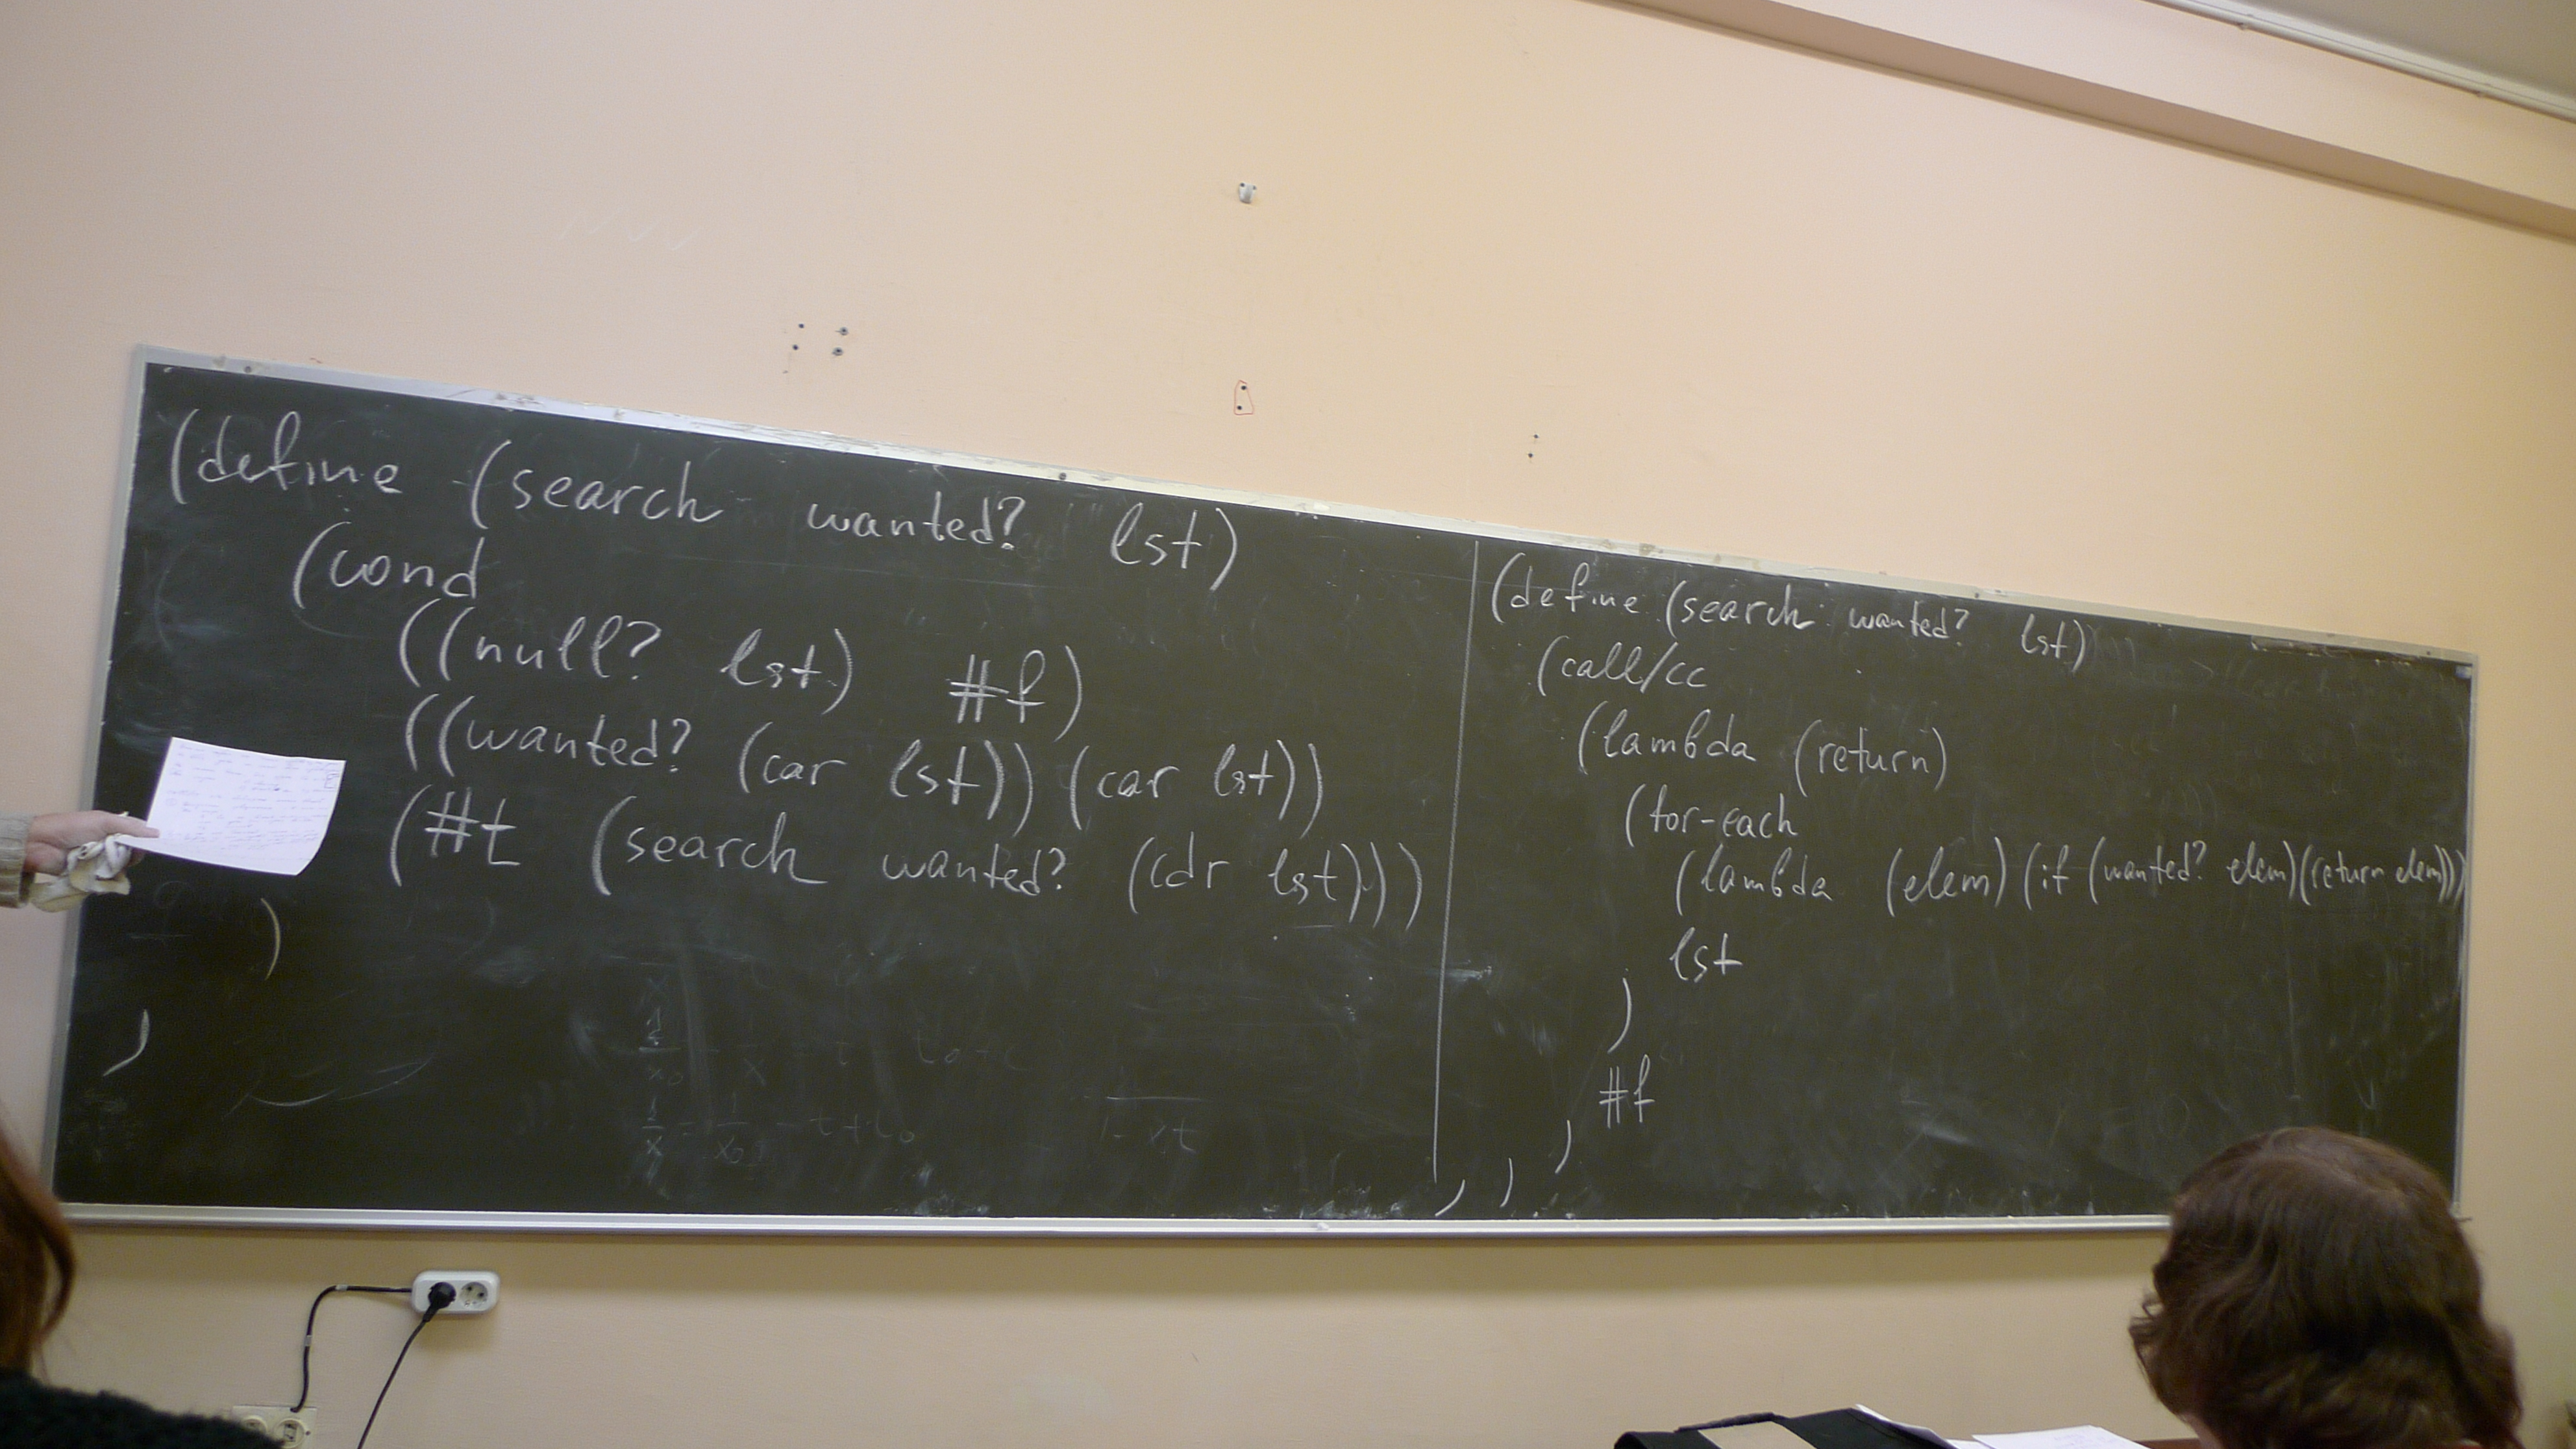 (define (search wanted? lst)
(cond
((null? lst) #f)
((wanted? (car lst)) (car lst))
(#t (search wanted? (cdr lst)))
)
)
(define (search wanted? lst)
(call/cc
(lambda (return)
(for-each
(lambda (elem) (if (wanted? elem)(return elem)))
lst
)
#f
)
)
)